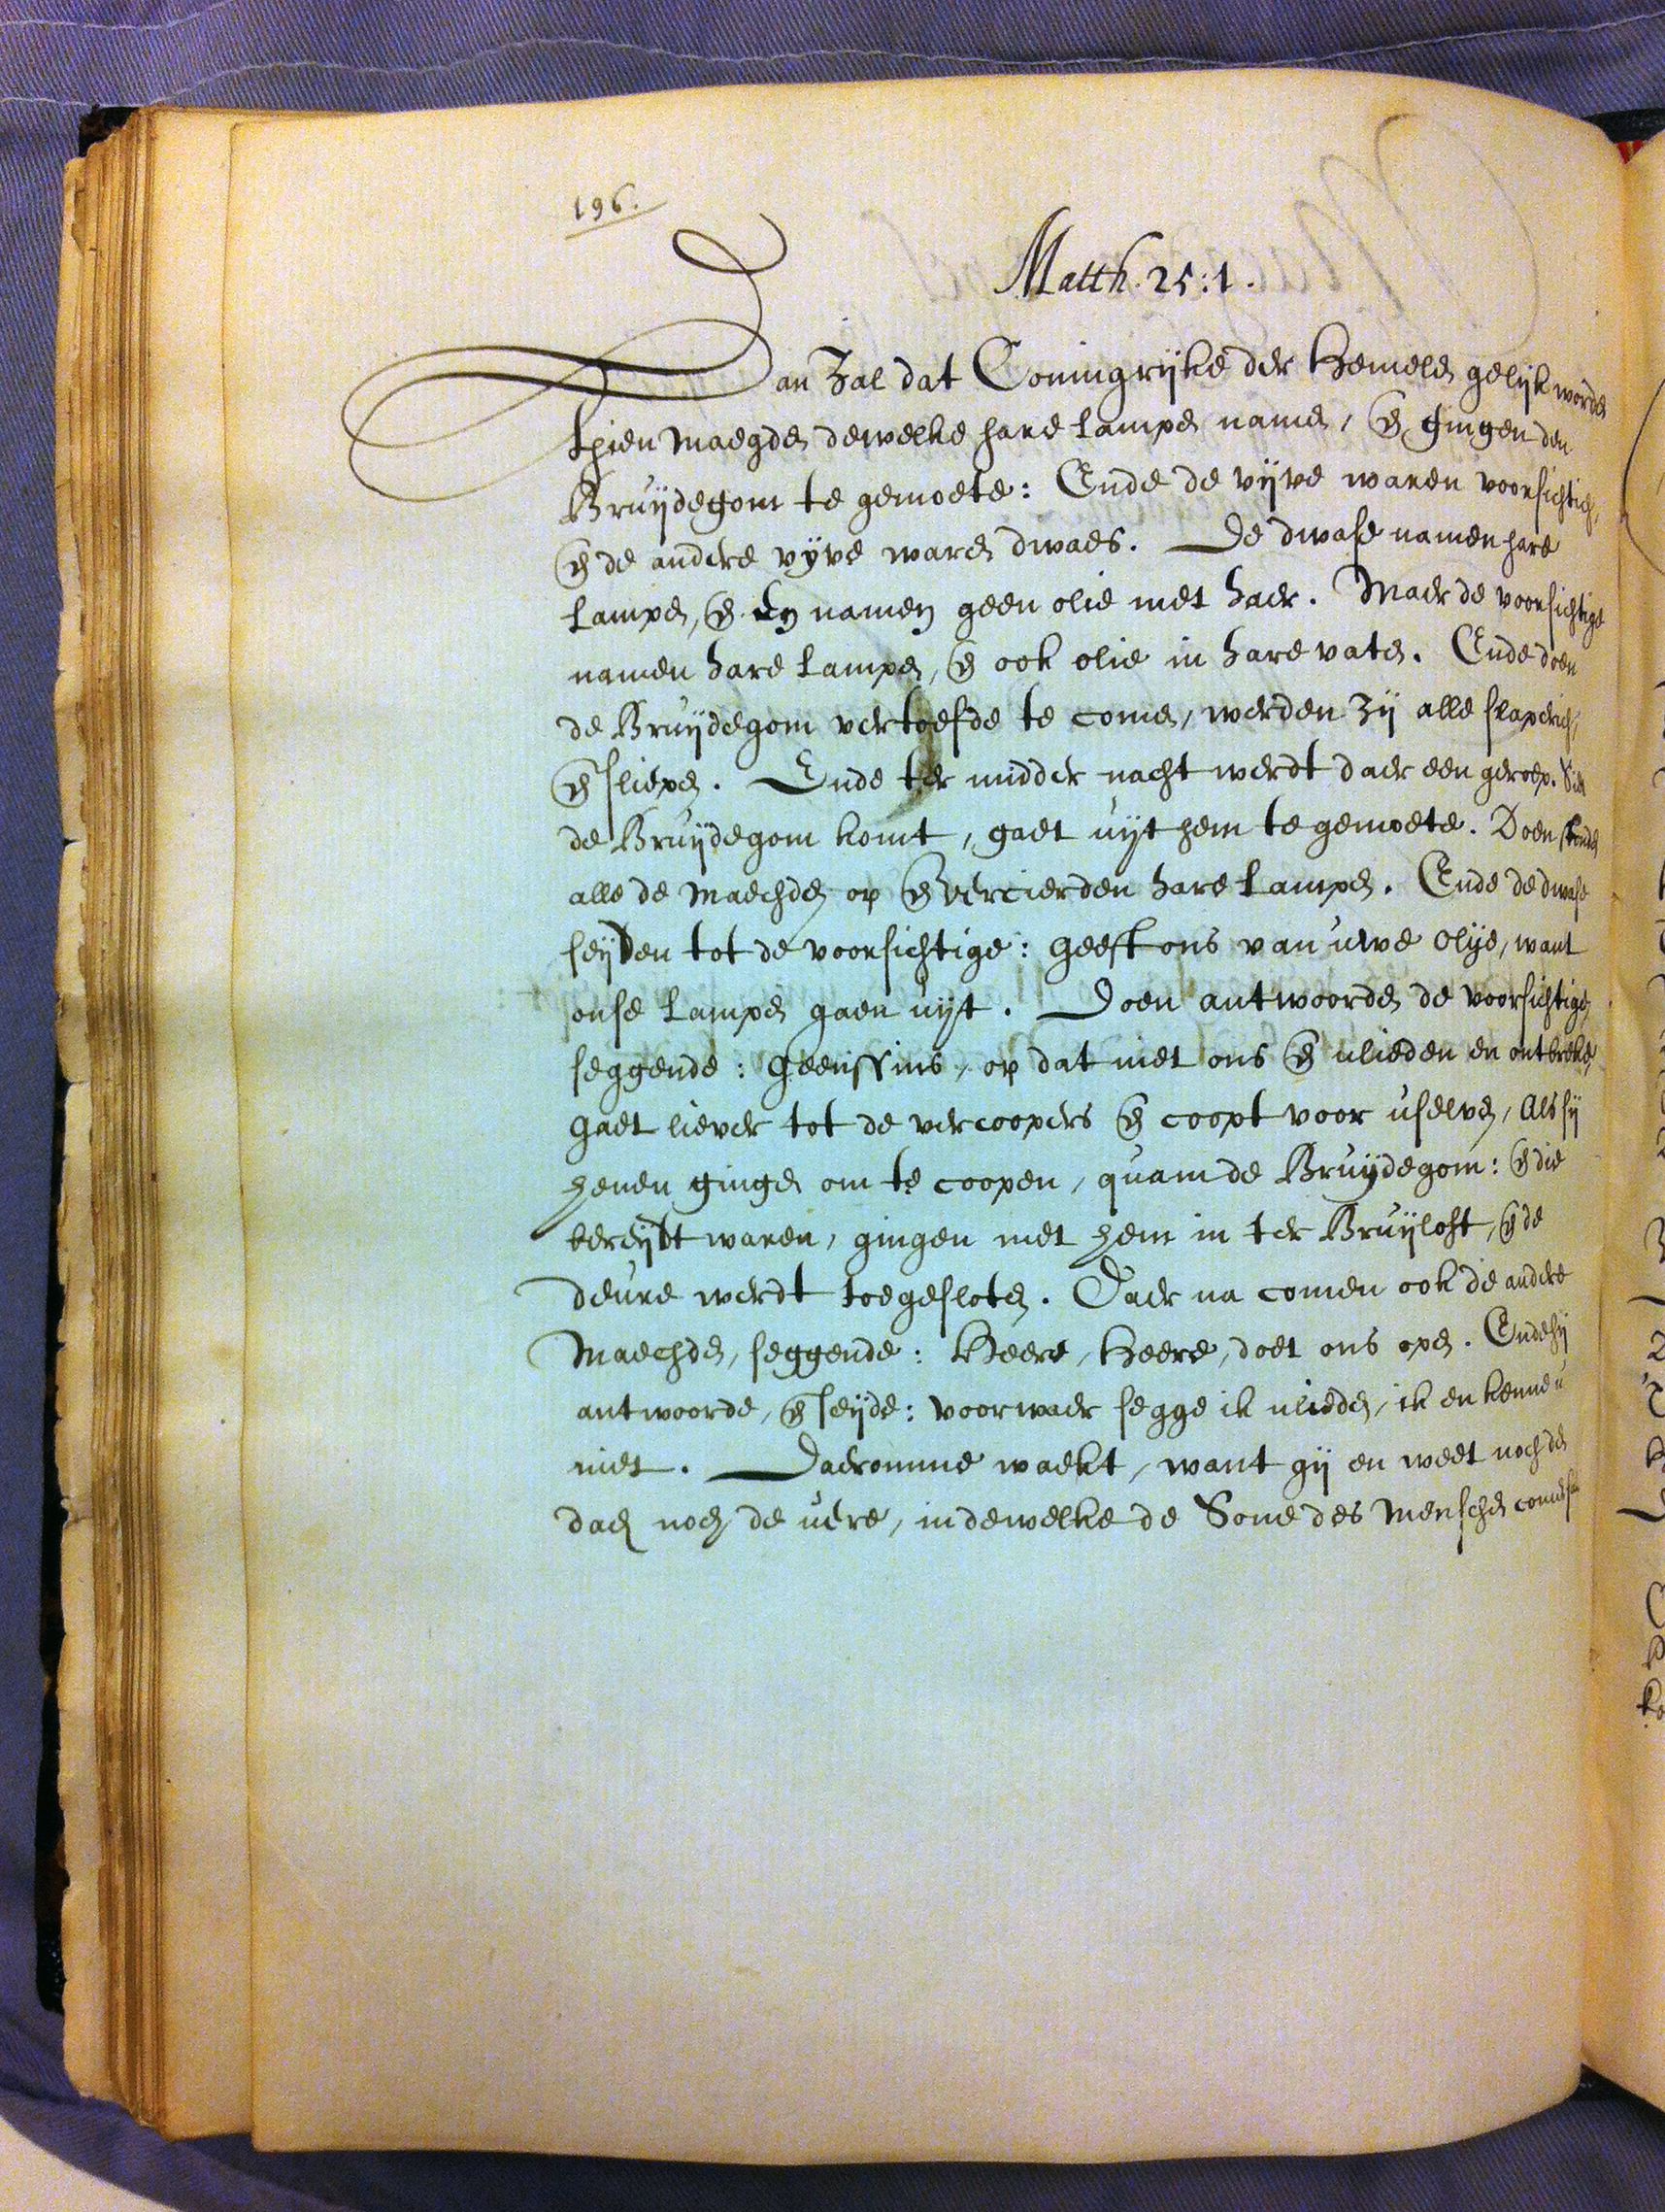 196.
Matth. 25:1.
Dan zal dat Coningrijke der Hemelen gelijk worden
thien maegden dewelke hare lampen namen, en gingen den
Bruijdegom te gemoete: Ende de vijve waren voorsichtich,
en de andere vijve waren dwaes. De dwase namen hare
lampen, en en namen geen olie met haer. Maer de voorsichtige
namen hare lampen, en ook olie in hare vaten. Ende doen
de Bruijdegom vertoefde te comen, werden zij alle slaperich,
en sliepen. Ende ter midder nacht werdt daer een geroep. Siet
de Bruijdegom komt, gaet uijt hem te gemoete. Doen stonden
alle de maechden op en vercierden hare lampen. Ende de dwase
seijden tot de voorsichtige: geeft ons van uwe olije, want
onse lampen gaen uijt. Doen antwoorden de voorsichtige,
seggende: Geenssins, op dat niet ons en ulieden en ontbreke,
gaet liever tot de vercoopers en coopt voor uselven, Als sij
henen gingen om te coopen, quam de Bruijdegom: en die
bereijdt waren, gingen met hem in ter Bruijloft, en de
deure werdt toegesloten. Daer na comen ook de andere
Maechden, seggende: Heere, Heere, doet ons open. Ende hij
antwoorde, en seijde: voorwaer segge ik ulieden, ik en kenne u
niet. Daeromme waekt, want gij en weet noch den
dach noch de uere, in dewelke de Sone des Menschen comen